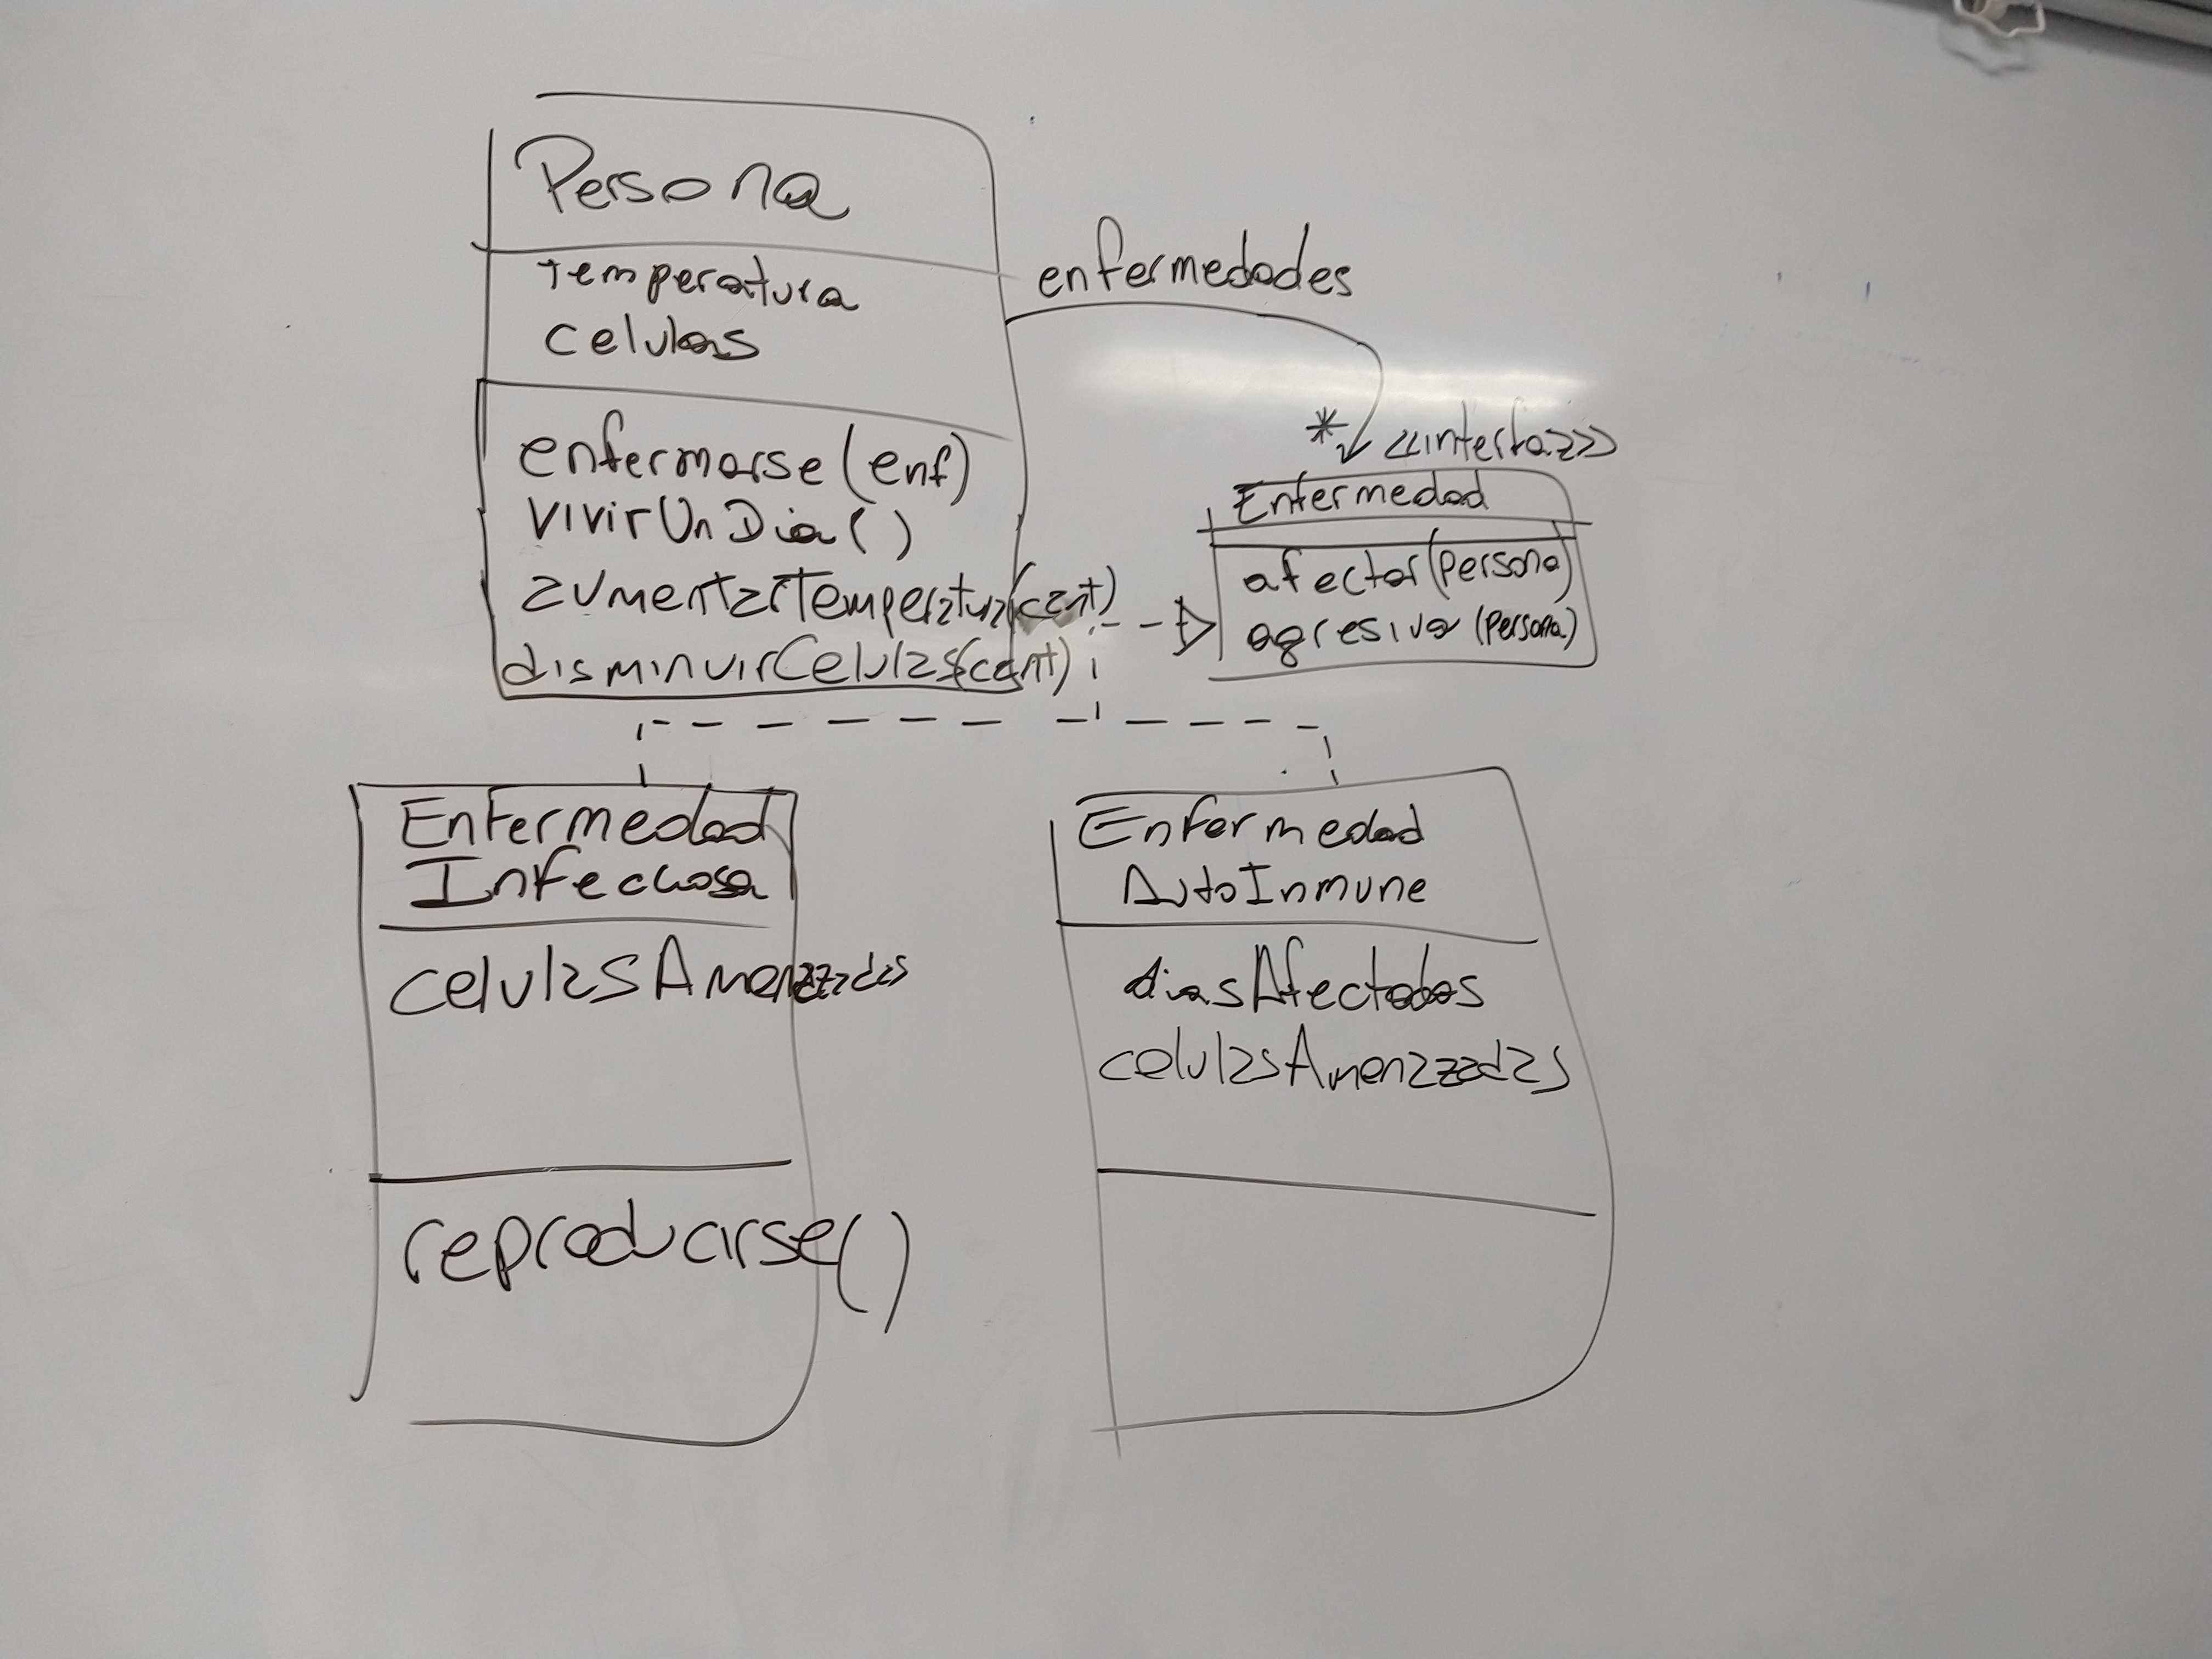 Persona
temperatura
celulas
enfermarse(enf)
vivirUnDia()
aumentarTemperatura(cant)
disminuirCelulas(cant)
enfermedades
*
<<interfaz>>
Enfermedad
afectar(persona)
agresiva(persona)
Enfermedad
Infecciosa
celulasAmenazadas
reproducirse()
Enfermedad
AutoInmune
diasAfectados
celulasAmenazadas